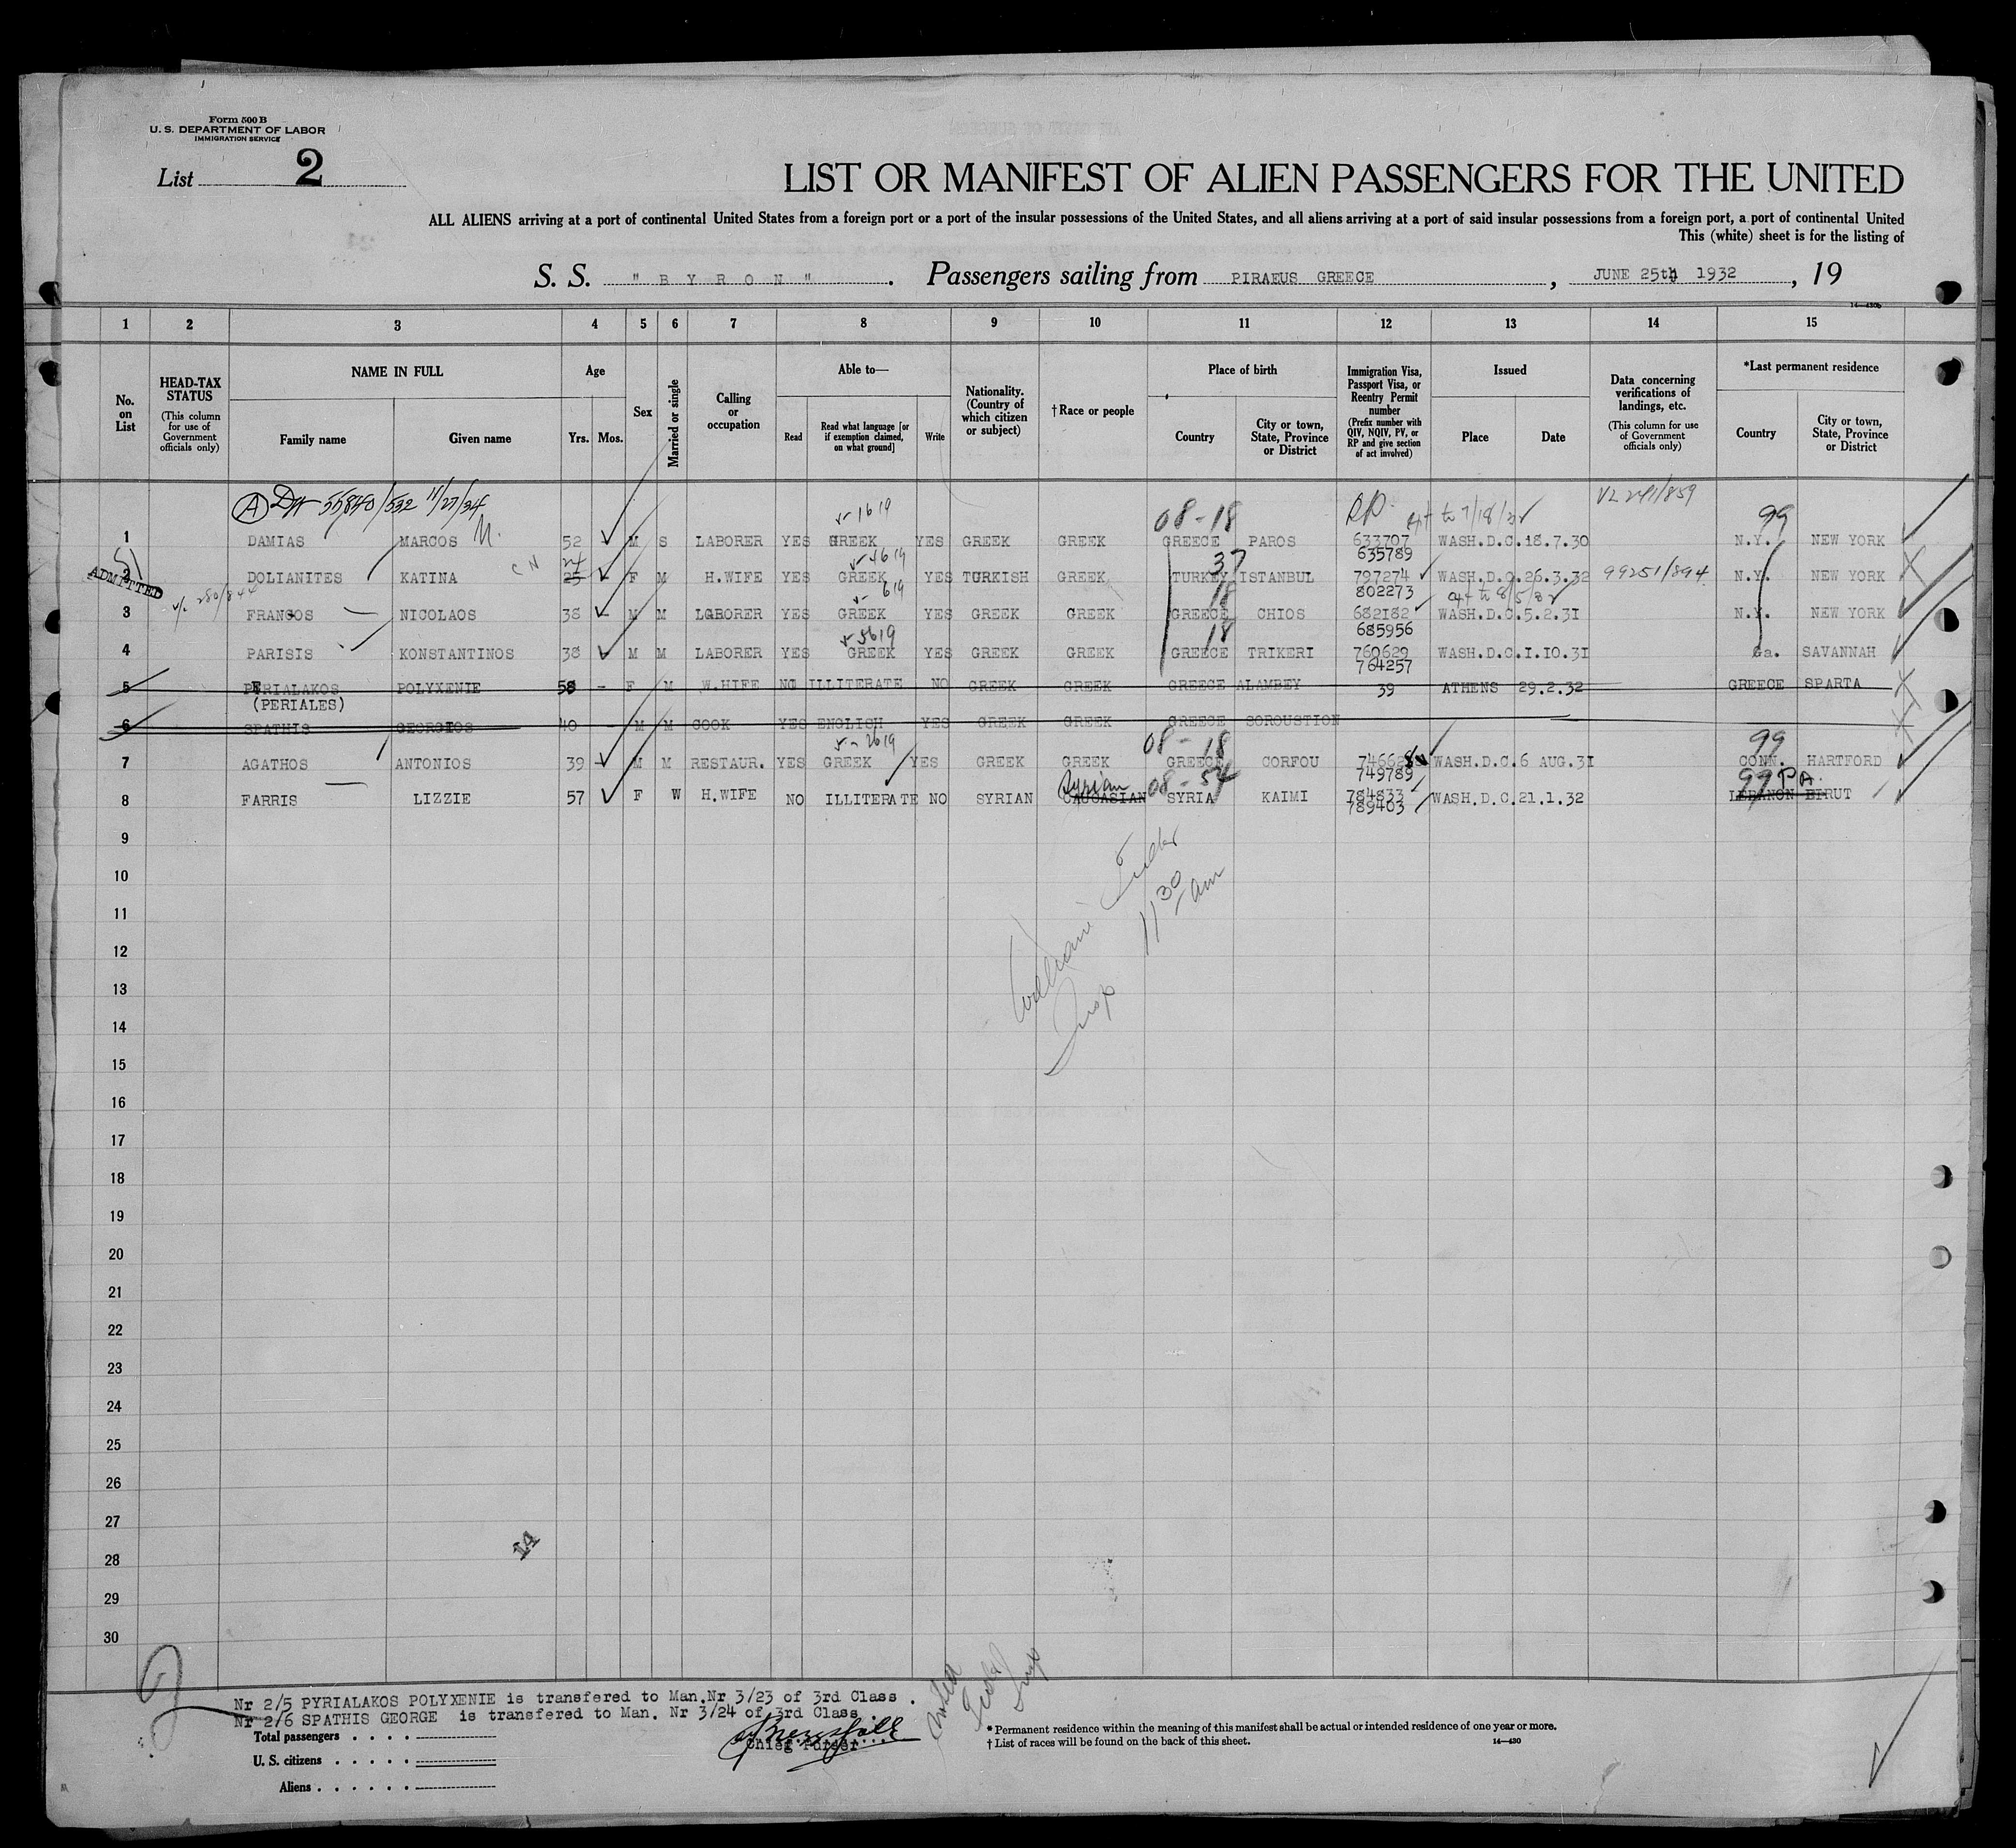 Form 500 B
U. S. DEPARTMENT OF LABOR
IMMIGRATION SERVICE
List 2
LIST OR MANIFEST OF ALIEN PASSENGERS FOR THE UNITED
ALL ALIENS arriving at a port of continental United States from a foreign port or a port of the insular possessions of the United States, and all aliens arriving at a port of said insular possessions from a foreign port, a port of continental United
This (white) sheet is for the listing of
S. S. " B Y R O N " . Passengers sailing from PIRAEUS GREECE , JUNE 25th 1932 , 19
14—430b
1 2 3 4 5 6 7 8 9 10 11 12 13 14 15
No. on List
HEAD-TAX STATUS (This column for use of Government officials only)
NAME IN FULL Family name Given name
Age Yrs. Mos.
Sex
Married or single
Calling or occupation
Able to— Read Read what language [or if exemption claimed, on what ground] Write
Nationality. (Country of which citizen or subject)
†Race or people
Place of birth Country City or town, State, Province or District
Immigration Visa, Passport Visa, or Reentry Permit number (Prefix number with QIV, NQIV, PV, or RP and give section of act involved)
Issued Place Date
Data concerning verifications of landings, etc. (This column for use of Government officials only)
*Last permanent residence Country City or town, State, Province or District
A 55840/532 11/27/34 1619 08-18 RP 99
1 DAMIAS MARCOS M. 52 M S LABORER YES GREEK YES GREEK GREEK GREECE PAROS 633707 WASH.D.C. 18.7.30 N.Y. NEW YORK
635789
ADMITTED
24 37
2 DOLIANITES KATINA 25 - F M H.WIFE YES GREEK YES TURKISH GREEK TURKEY ISTANBUL 797274 WASH.D.C. 26.3.32 99251/894 N.Y. NEW YORK
802273
619 18
3 FRANGOS NICOLAOS 38 M M LABORER YES GREEK YES GREEK GREEK GREECE CHIOS 682182 WASH.D.C. 5.2.31 N.Y. NEW YORK
685956
18
4 PARISIS KONSTANTINOS 38 M M LABORER YES GREEK YES GREEK GREEK GREECE TRIKERI 760629 WASH.D.C. 1.10.31 Ga. SAVANNAH
764257
5 PERIALAKOS POLYXENIE 58 - F M W.HIFE NO ILLITERATE NO GREEK GREEK GREECE ALAMBEY 39 ATHENS 29.2.32 GREECE SPARTA
(PERIALES)
6 SPATHIS GEORGIOS 40 - M M COOK YES ENGLISH YES GREEK GREEK GREECE SOROUSTION
2619 08-18 99
7 AGATHOS ANTONIOS 39 M M RESTAUR. YES GREEK YES GREEK GREEK GREECE CORFOU WASH.D.C. 6 AUG.31 CONN. HARTFORD
749789
Syrian 08-54 99 PA.
8 FARRIS LIZZIE 57 F W H.WIFE NO ILLITERATE NO SYRIAN CAUCASIAN SYRIA KAIMI 784833 WASH.D.C. 21.1.32 LEBANON BIRUT
789403
9
10
11 11 30 am
12
13
14 Insp
15
16
17
18
19
20
21
22
23
24
25
26
27
28 14
29
30
2
Nr 2/5 PYRIALAKOS POLYXENIE is transfered to Man.Nr 3/23 of 3rd Class .
Nr 2/6 SPATHIS GEORGE is transfered to Man. Nr 3/24 of 3rd Class
Total passengers . . . .
Chief Purser
U. S. citizens . . . . .
Aliens . . . . . .
Insp
* Permanent residence within the meaning of this manifest shall be actual or intended residence of one year or more.
† List of races will be found on the back of this sheet.
14—430